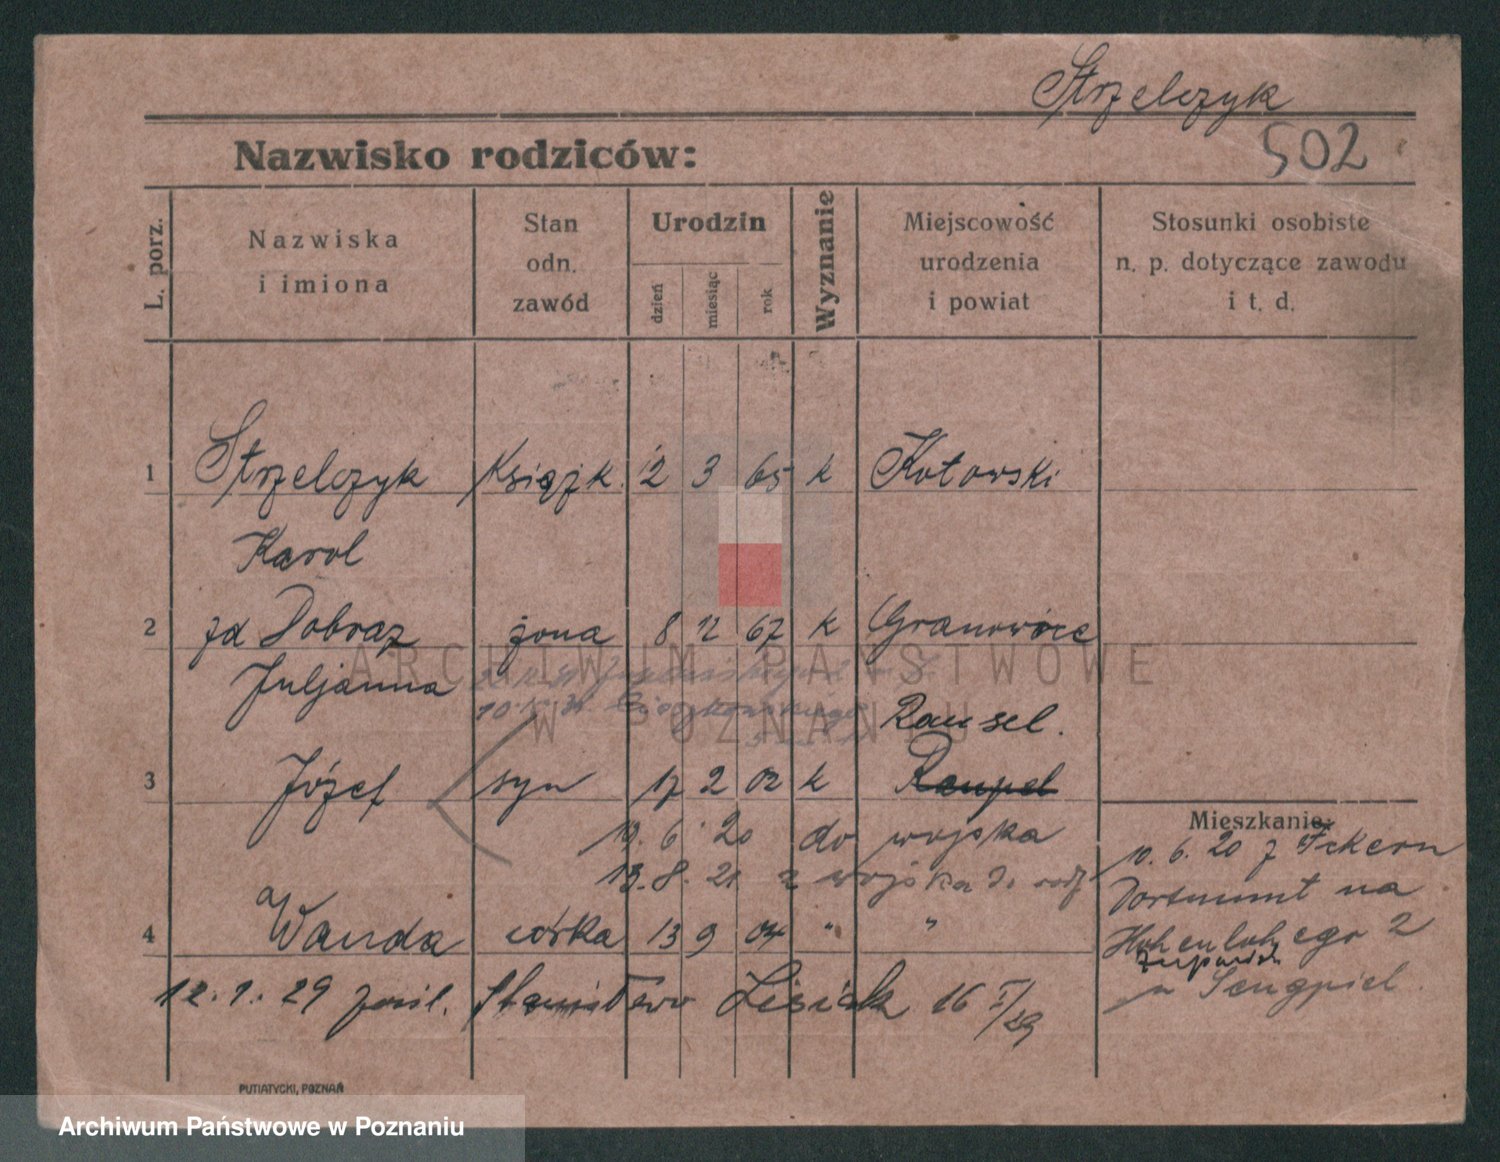 Strzelczyk
Nazwisko rodziców:
502
L. porz.
Nazwiska i imiona
Stan odn. zawód
Urodzin
dzień
miesiąc
rok
Wyznanie
Miejscowość urodzenia i powiat
Stosunki osobiste n. p. dotyczące zawodu i t. d.
1 Strzelczyk Książk. 12 3 65 k Kotowski
Karol
2 zd Dobraz żona 8 12 67 k Granowice
Juljanna
Rauxel.
3 Józef syn 17 2 02 k
Mieszkanie:
19. 6. 20 do wojska
10. 6. 20 z Ickern
13. 8. 21 z wojska do rodz
Dortmunt na
4 Wanda córka 13 9 04 " "
Hohenlohego 2
u Sengpiel.
12. 1. 29 zaśl. Stanisław Lisiak 16 I/29
PUTIATYCKI, POZNAŃ
ARCHIWUM PAŃSTWOWE
W POZNANIU
Archiwum Państwowe w Poznaniu